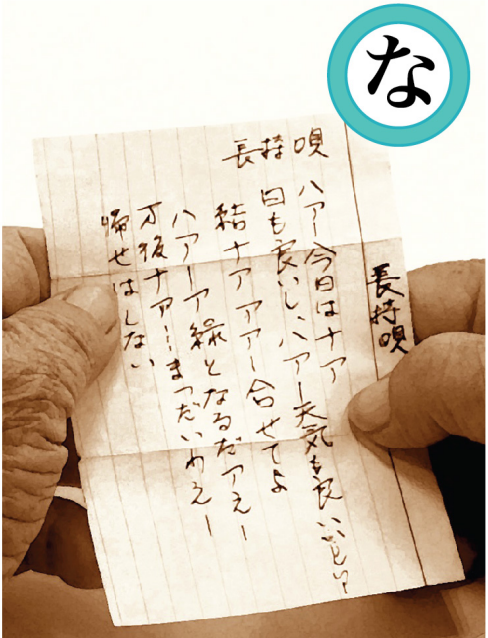 な
長持唄
長持唄
ハアー今日はナア
日も良いし、ハアー天気も良いし
結ナアアアー合せてよ
ハアーア縁となるだアえー
帰せはしない